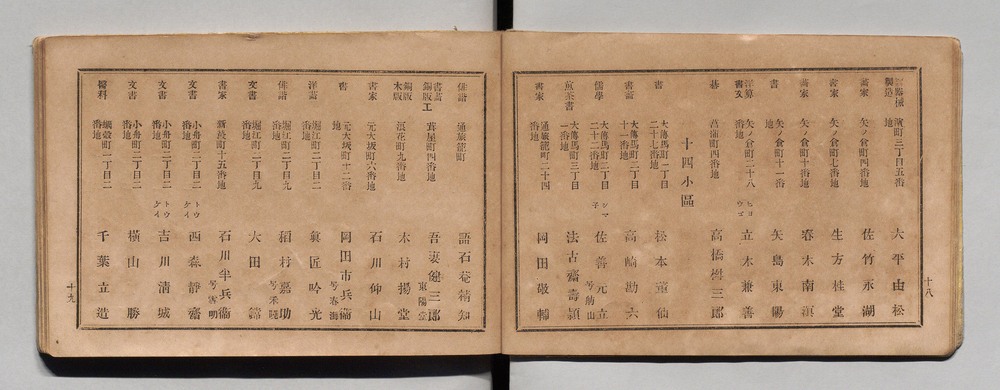 濱町三丁目五番地 大平由松
畵家 矢ノ倉町四番地 佐竹永湖
書家 矢ノ倉町七番地 生方桂堂
畵家 矢ノ倉町十番地 春木南溟
書 矢ノ倉町十一番地 矢島東陽
洋算 矢ノ倉町二十八番地 立木兼善
碁 菖蒲町四番地 高橋 三郎
十四小區
書 大傳馬町一丁目二十七番地 松本董仙
書畵 大傳馬町二丁目十一番地 高崎勘六
儒學 大傳馬町二丁目二十二番地 佐善元立
煎茶書 大傳馬町三丁目一番地 法古齋壽頴
書家 通旅籠町二十四番地 岡田敬輔
十八
俳諧 通旅籠町 語石菴精知
書畵銅版工 葺屋町四番地 吾妻健三郎 東陽堂
銅版木版 浪花町九番地 木村揚堂
書家 元大坂町六番地 石川仲山
書 元大坂町十二番地 岡田市兵衞 号春海
洋畵 堀江町二丁目二番地 眞匠吟光
俳諧 堀江町二丁目九番地 稻村嘉助
文書 堀江町二丁目九番地 大田
書家 新材木町十五番地 石川半兵衞
文書 小舟町二丁目二番地 西森靜齋
文書 小舟町二丁目二番地 吉川清城
文書 小舟町三丁目二番地 橫山勝
醫科 堀留町一丁目二番地 千葉立造
十九